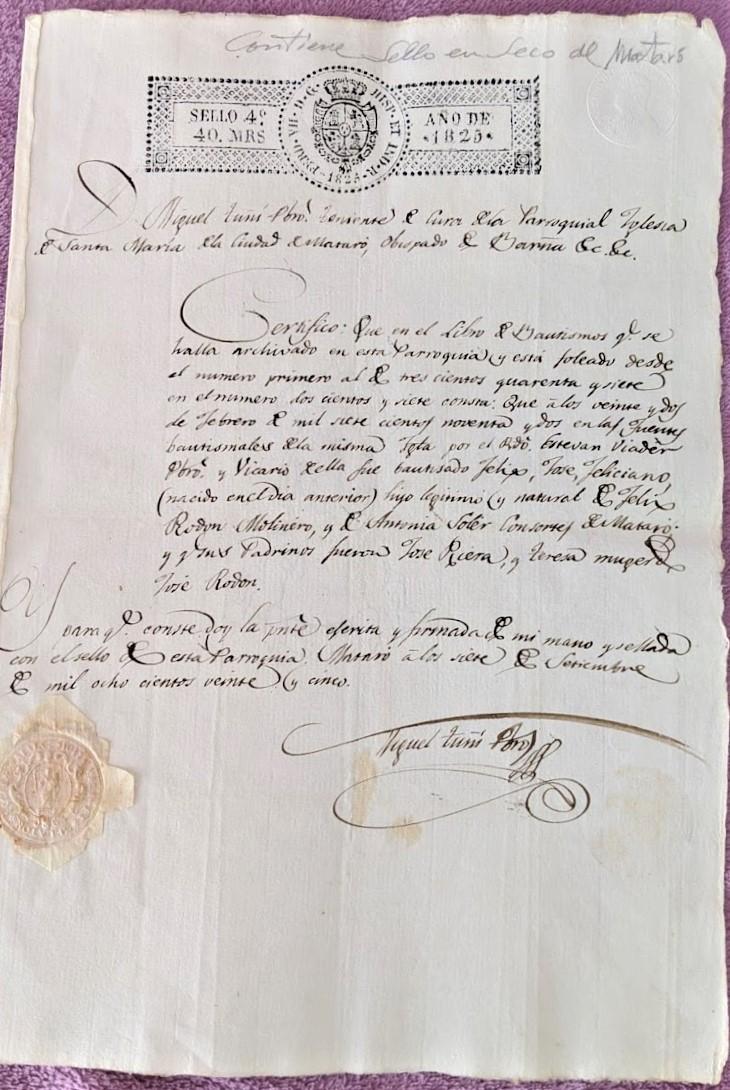 Contiene Sello en Seco de Mataró
SELLO 4º
40. MRS
FERD. VII. D. G. HISP. ET IND. R. 1825
AÑO DE
1825
D. Miguel Tuñí Pbro. Teniente de Cura de la Parroquial Iglesia
de Santa María de la Ciudad de Mataró, Obispado de Barña &c. &c.
Certifico: Que en el Libro de Bautismos q.e se
halla archivado en esta Parroquia y está foleado desde
el numero primero al de tres cientos quarenta y siete
en el numero dos cientos y siete consta: Que á los veinte y dos
de febrero de mil siete cientos noventa y dos en las fuentes
bautismales de la misma Igla por el Rdo. Estevan Viadér
Pbro. y Vicario de ella fue bautisado Felix, Jose, Feliciano,
(nacido en el dia anterior) hijo legitimo y natural de Felix
Rodon Molinero, y de Antonia Solér Consortes de Mataró;
y q. sus Padrinos fueron Jose Riera, y Teresa muger de
José Rodon.
Y para q.e conste doy la pnte escrita y firmada de mi mano y sellada
con el sello de esta Parroquia. Mataró á los siete de Setiembre
de mil ocho cientos veinte y cinco.
Miguel Tuñí Pbro.